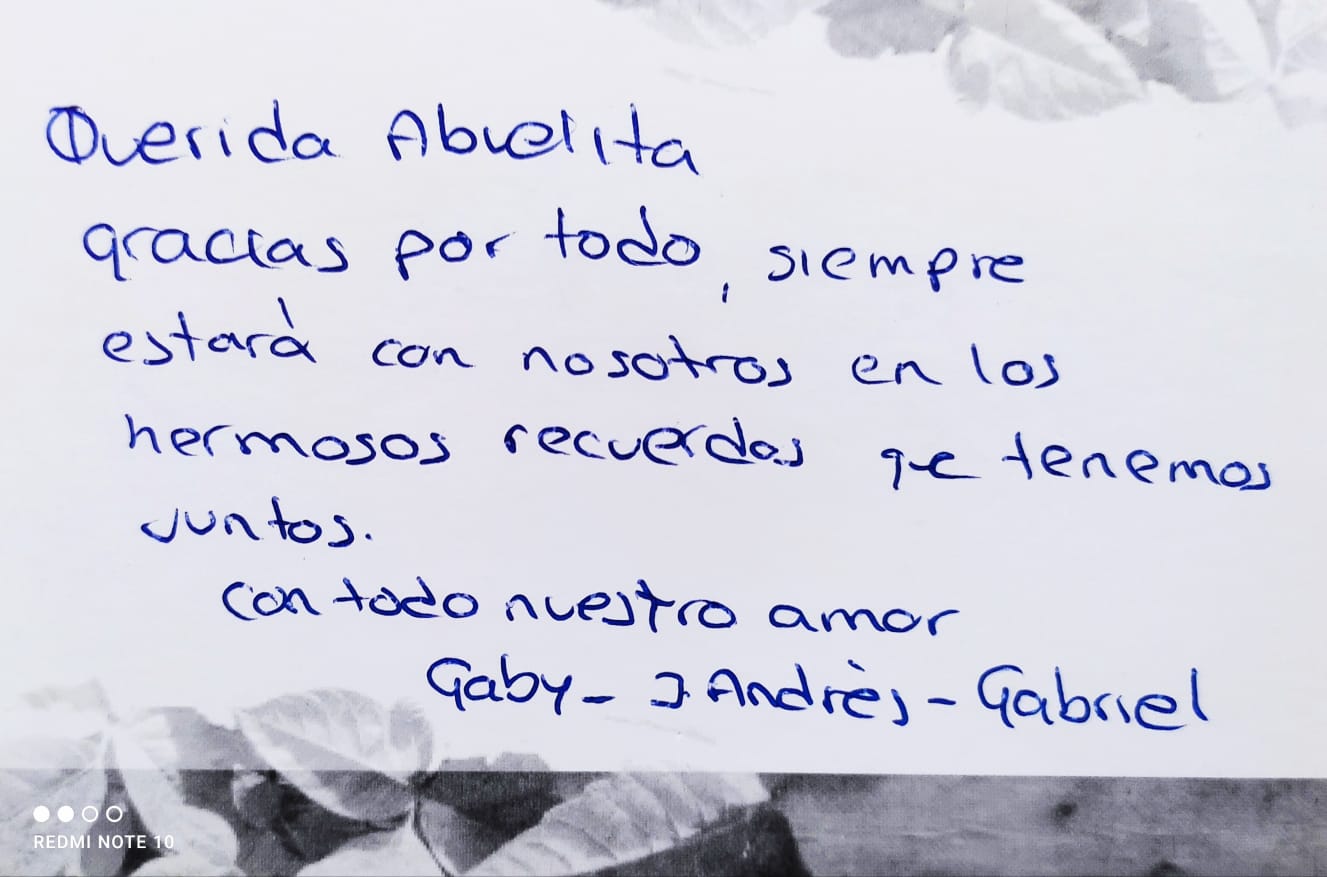 Querida Abuelita
gracias por todo, siempre
estará con nosotros en los
hermosos recuerdos que tenemos
juntos.
con todo nuestro amor
Gaby - J Andrés - Gabriel
REDMI NOTE 10